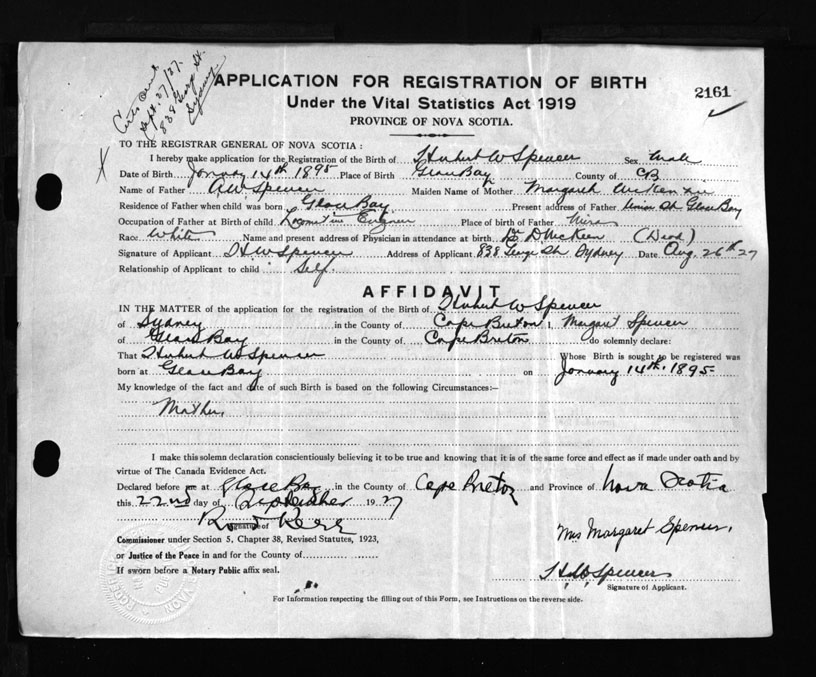 Sept. 27/27.
838 George St.
Sydney
APPLICATION FOR REGISTRATION OF BIRTH
2161
Under the Vital Statistics Act 1919
PROVINCE OF NOVA SCOTIA.
TO THE REGISTRAR GENERAL OF NOVA SCOTIA :
X
I hereby make application for the Registration of the Birth of Hubert W Spencer Sex Male
Date of Birth January 14th 1895 Place of Birth Glace Bay County of CB
Name of Father A W Spencer Maiden Name of Mother Margaret
Residence of Father when child was born Glace Bay Present address of Father Union St. Glace Bay
Occupation of Father at Birth of child Locomotive Engineer Place of birth of Father Mira
Race White Name and present address of Physician in attendance at birth Dr D. McKeen (Dead)
Signature of Applicant H W Spencer Address of Applicant 838 George St. Sydney Date Aug. 26th 27
Relationship of Applicant to child Self.
AFFIDAVIT
IN THE MATTER of the application for the registration of the Birth of Hubert W Spencer
of Sydney in the County of Cape Breton I, Margaret Spencer
of Glace Bay in the County of Cape Breton do solemnly declare:
That Hubert W Spencer Whose Birth is sought to be registered was
born at Glace Bay on January 14th. 1895
My knowledge of the fact and date of such Birth is based on the following Circumstances:—
Mother.
I make this solemn declaration conscientiously believing it to be true and knowing that it is of the same force and effect as if made under oath and by
virtue of The Canada Evidence Act.
Declared before me at Glace Bay in the County of Cape Breton and Province of Nova Scotia
this 22nd day of September 1927
Signature of
Commissioner under Section 5, Chapter 38, Revised Statutes, 1923,
Mrs Margaret Spencer.
or Justice of the Peace in and for the County of
If sworn before a Notary Public affix seal.
H W Spencer
Signature of Applicant.
For Information respecting the filling out of this Form, see Instructions on the reverse side.